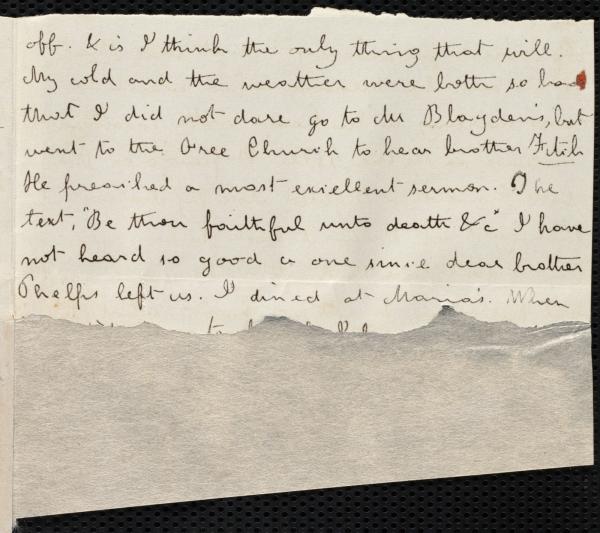 off. & is I think the only thing that will.
My cold and the weather were both so bad
that I did not dare go to Mr Blagden's, but
went to the Free Church to hear brother Fitch
He preached a most excellent sermon. The
text, "Be thou faithful unto death &c" I have
not heard so good a one since dear brother
Phelps left us. I dined at Maria's. When
to